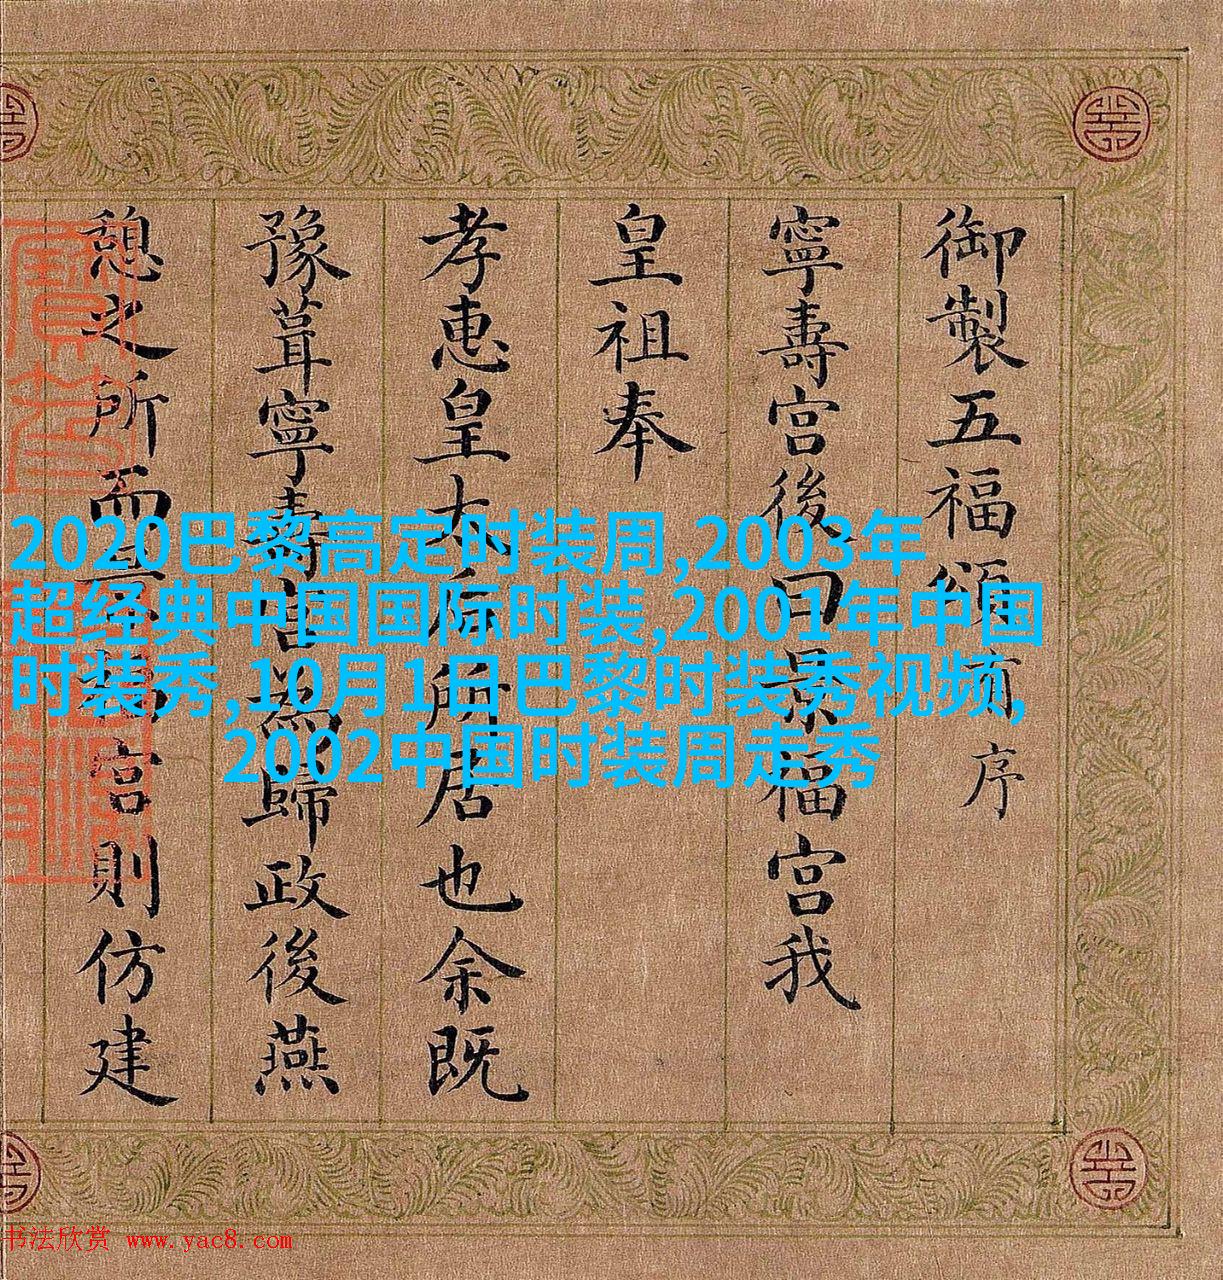 御製五福頌有序
寧壽宮後曰景福宮我
皇祖奉
孝惠皇太后所居也余既
豫葺寧壽宮為歸政後燕
憩之所而景福宮則仿建
2020巴黎高定时装周,2003年
超经典中国国际时装,2001年中国
时装秀,10月1日巴黎时装秀视频,
2002中国时装周走秀
书法欣赏 www.yac8.com